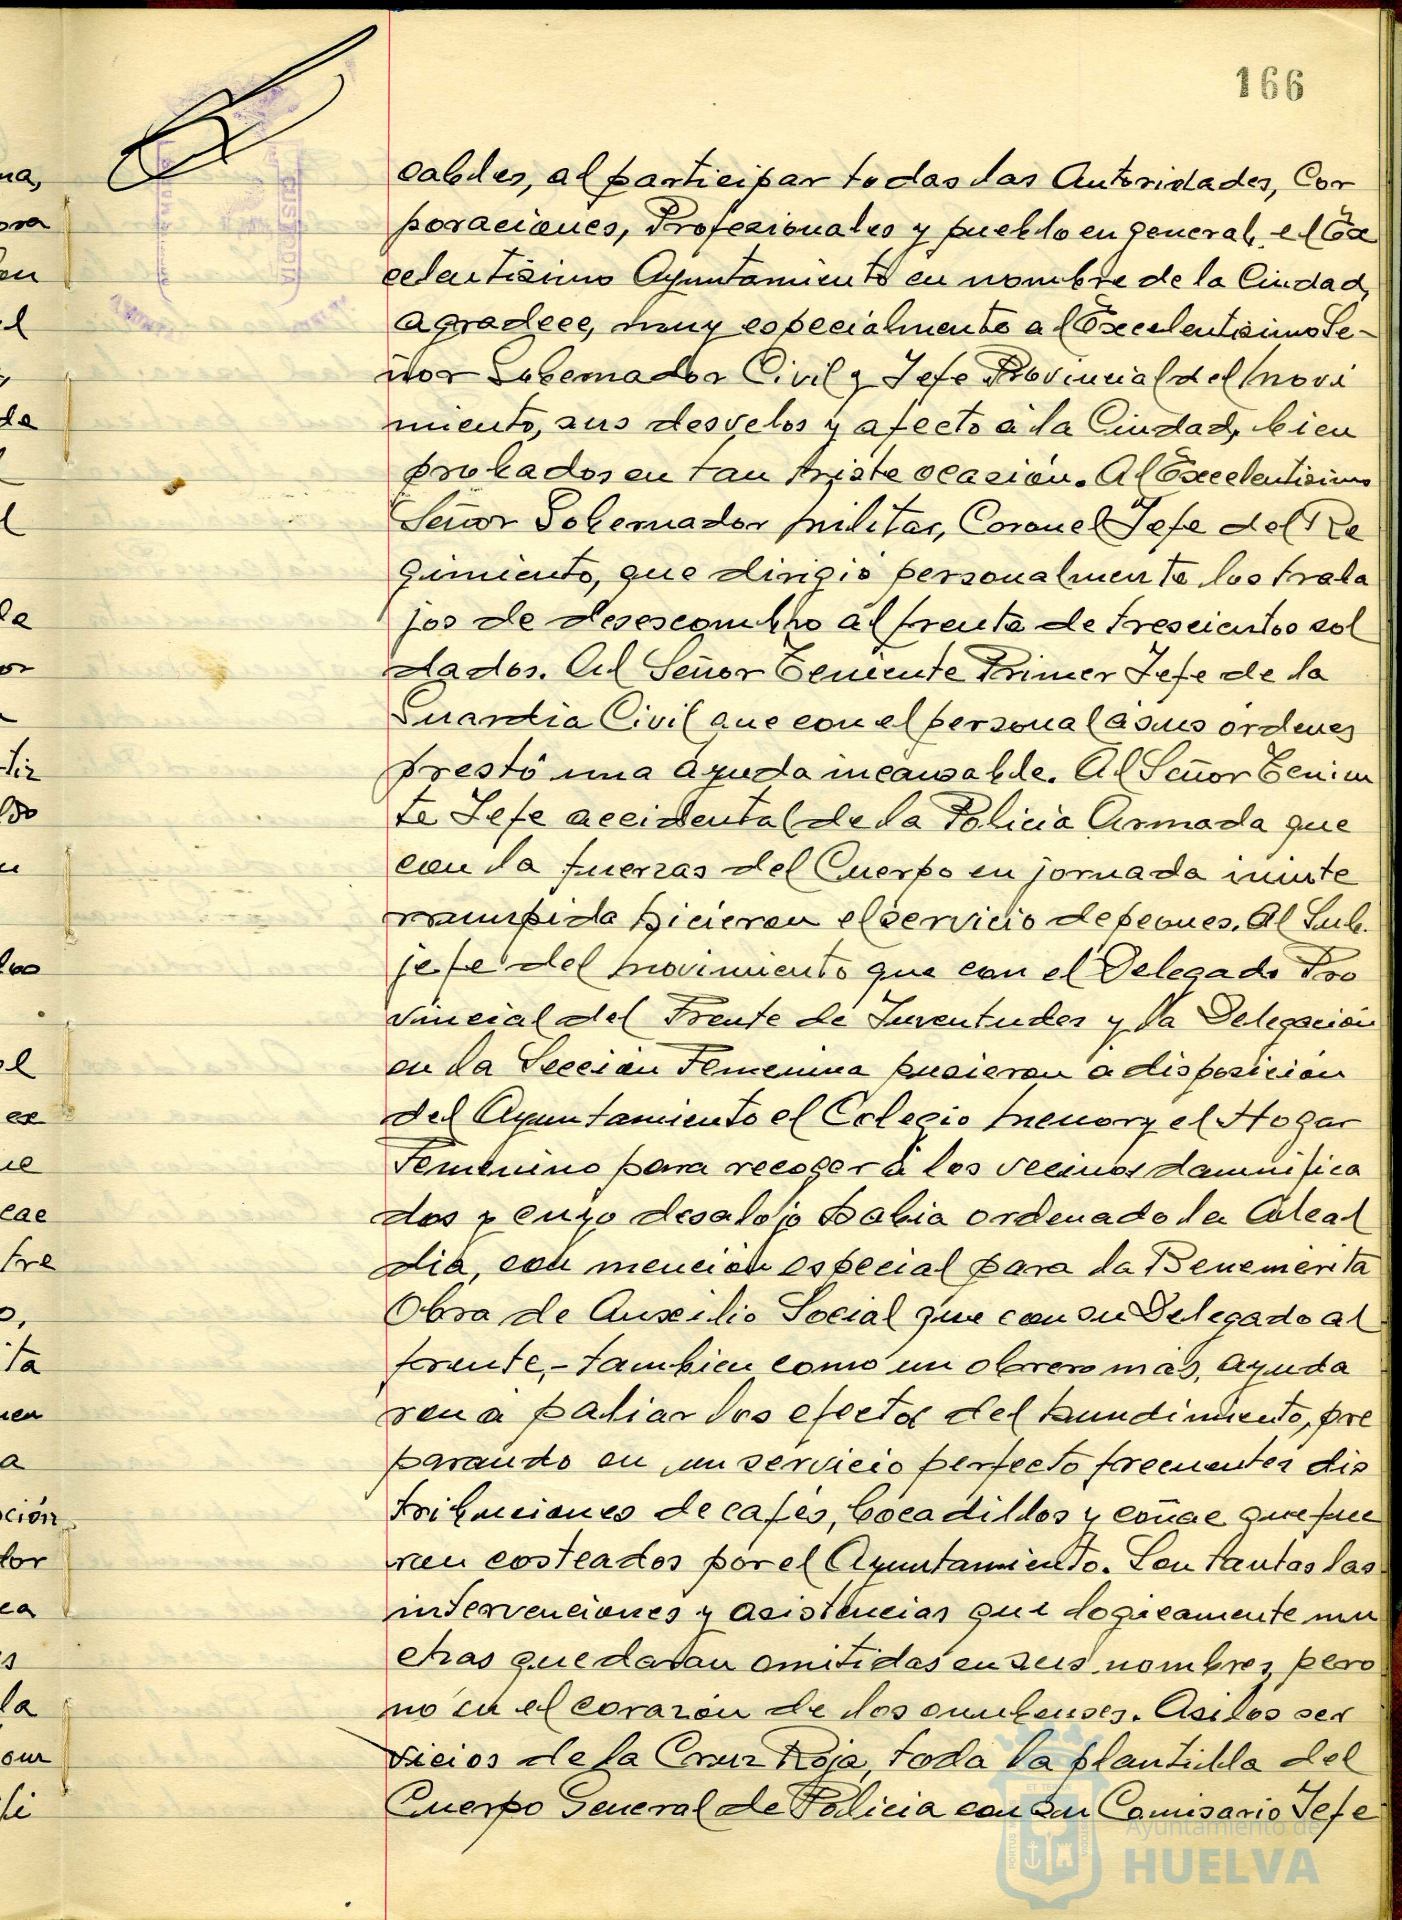 166
cables, al participar todas las Autoridades, Cor
poraciones, Profesionales y pueblo en general, el Ex
celentisimo Ayuntamiento en nombre de la Ciudad,
agradece, muy especialmente al Excelentisimo Se-
ñor Gobernador Civil y Jefe Provincial del Movi
miento, sus desvelos y afecto á la Ciudad, bien
probados en tan triste ocasión. Al Excelentisimo
Señor Gobernador Militar, Coronel Jefe del Re
gimiento, que dirigió personalmente los traba
jos de desescombro al frente de trescientos sol
dados. Al Señor Teniente Primer Jefe de la
Guardia Civil que con el personal á sus órdenes
prestó una ayuda incansable. Al Señor Tenien
te Jefe accidental de la Policia Armada que
con la fuerzas del Cuerpo en jornada ininte
rrumpida hicieron el servicio de peones. Al Sub.
jefe del Movimiento que con el Delegado Pro
vincial del Frente de Juventudes y la Delegación
en la Sección Femenina pusieron á disposición
del Ayuntamiento el Colegio Menor y el Hogar
Femenino para recoger á los vecinos damnifica
dos y cuyo desalojo habia ordenado la Alcal
dia, con mención especial para la Benemérita
Obra de Auxilio Social que con su Delegado al
frente,- tambien como un obrero más, ayuda
ron á paliar los efectos del hundimiento, pre
parando en un servicio perfecto frecuentes dis
tribuciones de cafés, bocadillos y coñac que fue
ron costeados por el Ayuntamiento. Son tantas las
intervenciones y asistencias que logicamente mu
chas quedarán omitidas en sus nombres, pero
no en el corazón de los onubenses. Asi los ser
vicios de la Cruz Roja, toda la plantilla del
Cuerpo General de Policia con su Comisario Jefe
Ayuntamiento de
HUELVA